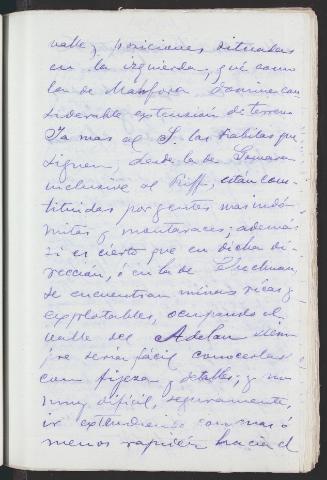 valle, y posiciones situadas
en la izquierda, qué como
la de domina con
siderable extensión de terreno
Ya mas al S. las kabilas que
siguen, desde la de
inclusive al Riff, están cons-
tituidas por gentes mas indó-
mitas y montaraces; además
si es cierto que en dicha di-
rección, ó en la de
se encuentran minas ricas y
explotables, ocupando el
valle del Adelau siem
pre seria fácil conocerlas
con fijeza y detalles; y no
muy difícil, seguramente,
ir extendiendo con mas ó
menos rapidéz hacia el